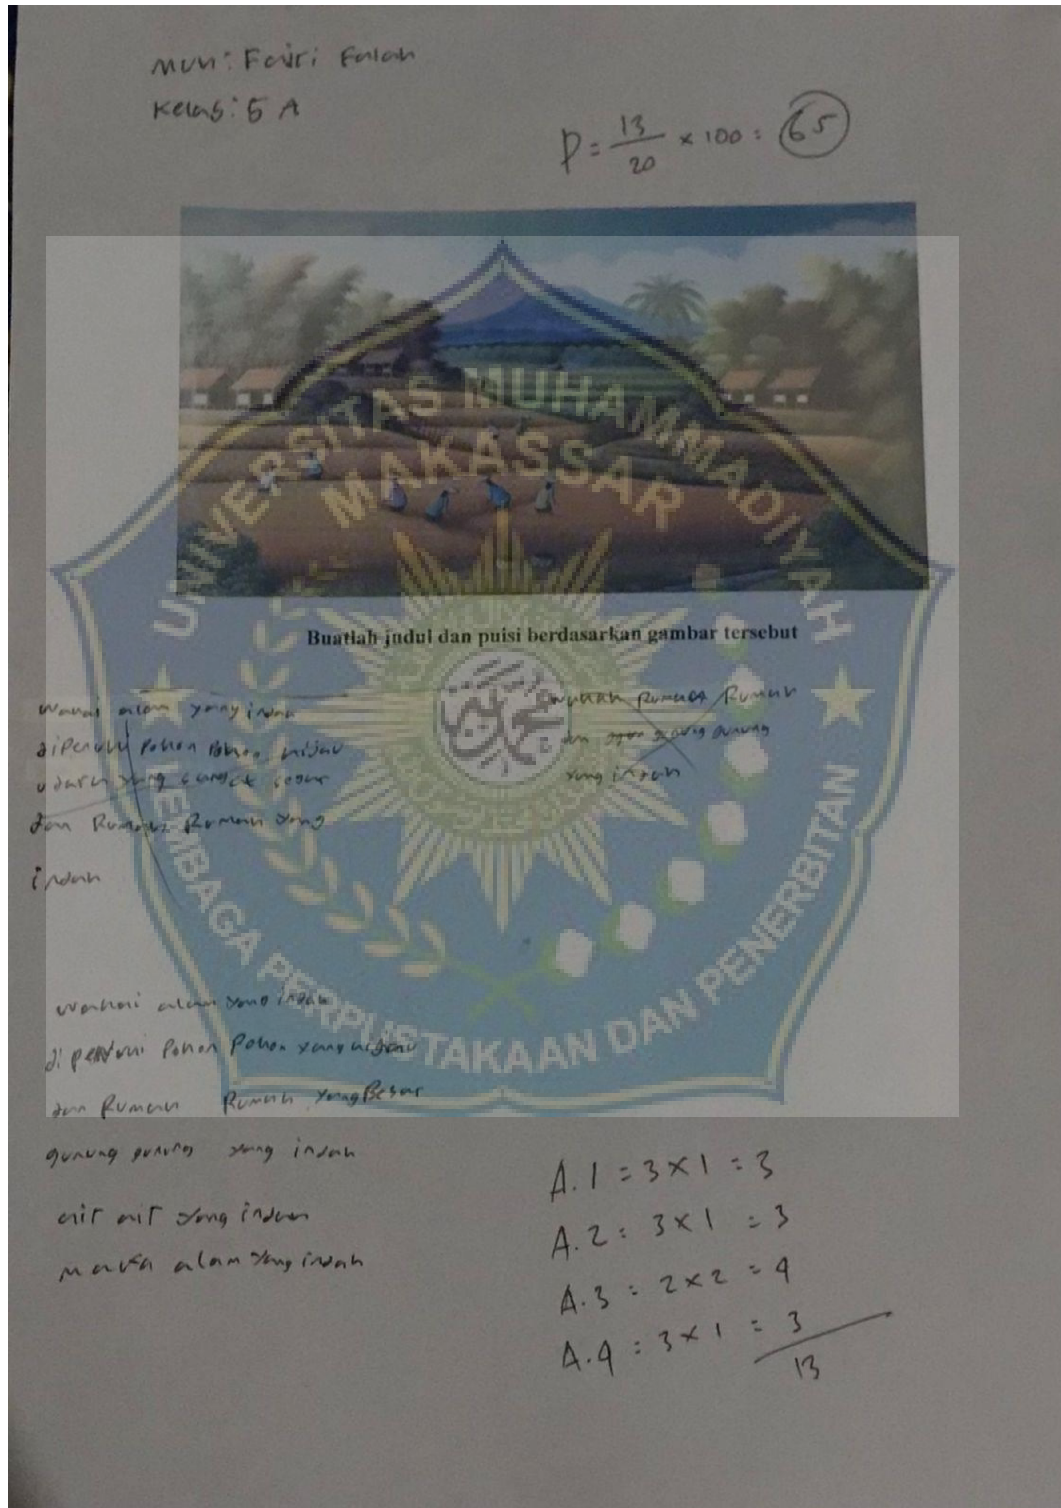 Muh: Fajri Falah
Kelas: 5 A
P = 13/20 × 100 = 65
UNIVERSITAS MUHAMMADIYAH
MAKASSAR
Buatlah judul dan puisi berdasarkan gambar tersebut
alam yang indah
dipenuhi Pohon Pohon hijau
udara yang sangat segar
dan Rumah Rumah yang
indah
Rumah Rumah
dan gunung gunung
yang indah
LEMBAGA PERPUSTAKAAN DAN PENERBITAN
alam yang indah
di penuhi Pohon Pohon yang hijau
dan Rumah Rumah yang Besar
gunung gunung yang indah
air air yang indah
maka alam yang indah
A.1 = 3 × 1 = 3
A.2 = 3 × 1 = 3
A.3 = 2 × 2 = 4
A.4 = 3 × 1 = 3
13